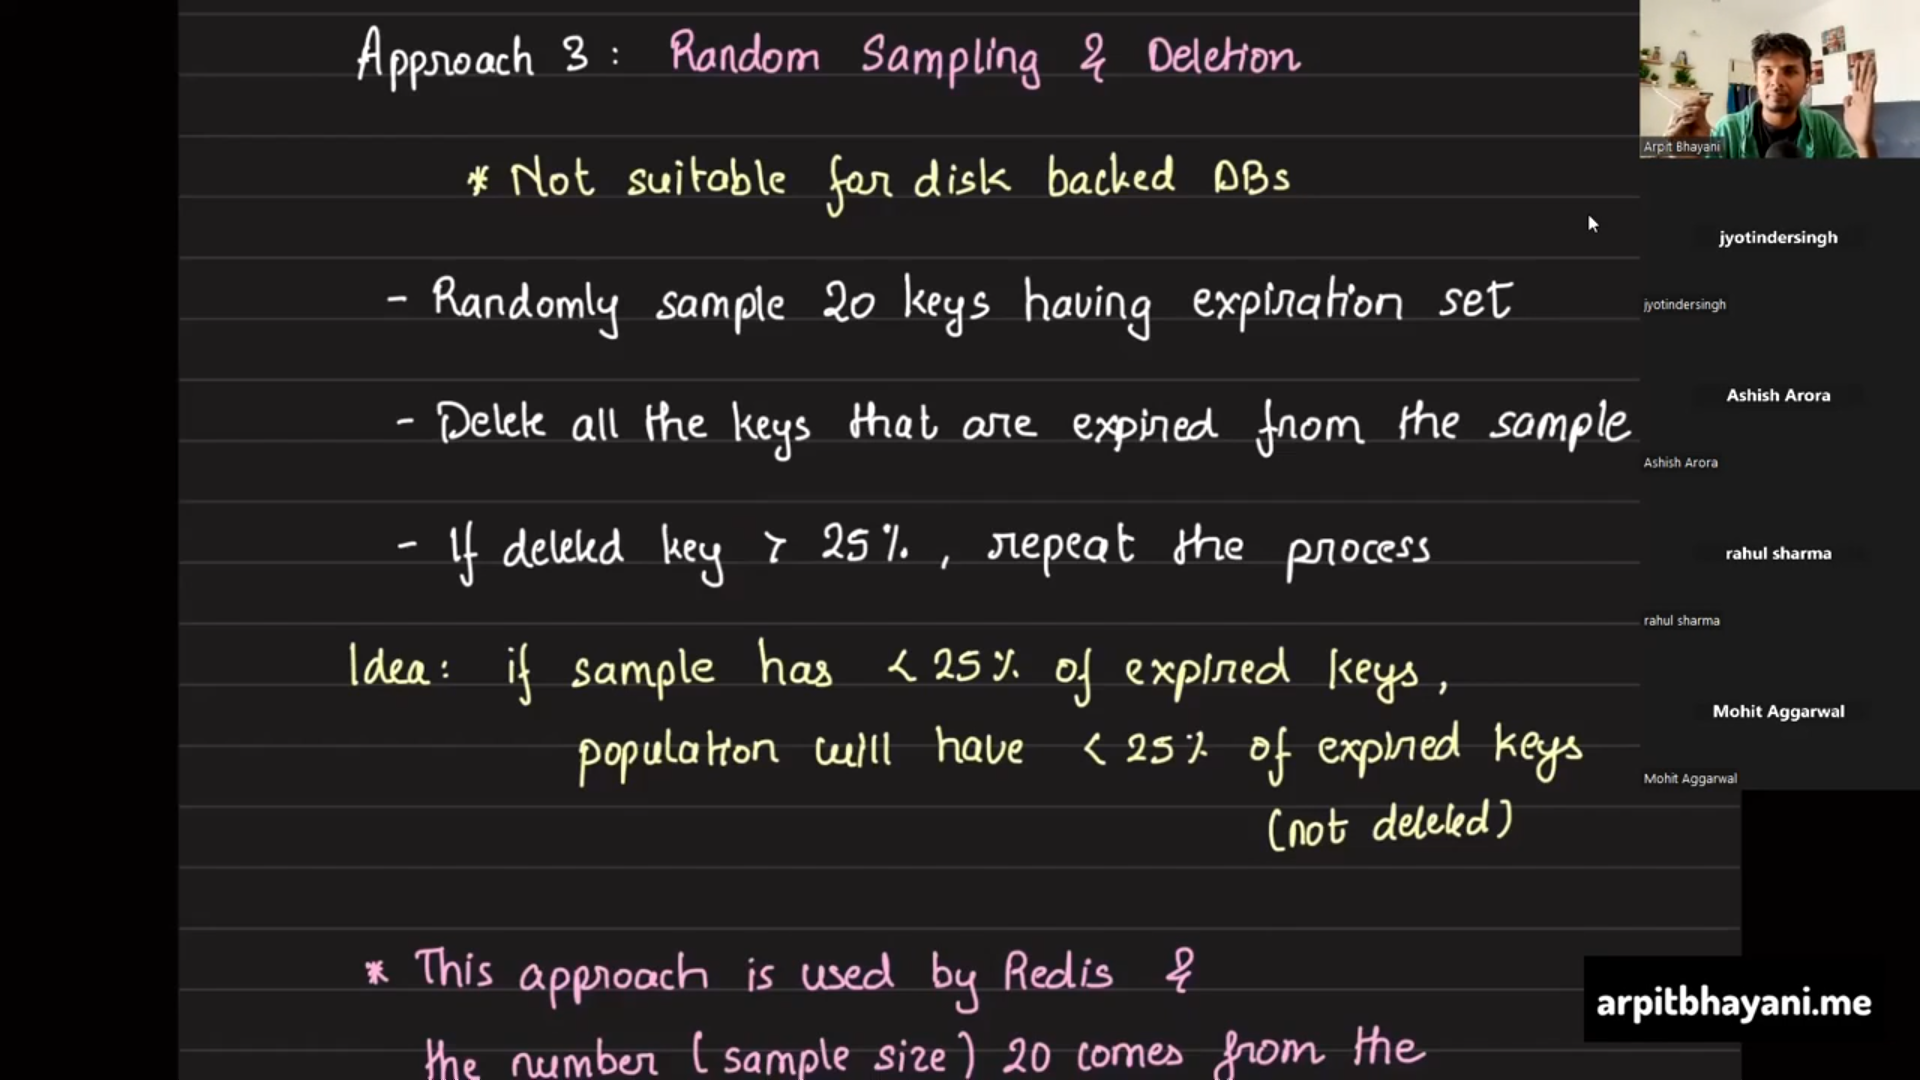 Approach 3: Random Sampling & Deletion
* Not suitable for disk backed DBs
- Randomly sample 20 keys having expiration set
- Delete all the keys that are expired from the sample
- If deleted key > 25%, repeat the process
Idea: if sample has < 25% of expired keys,
population will have < 25% of expired keys
(not deleted)
* This approach is used by Redis &
the number (sample size) 20 comes from the
Arpit Bhayani
jyotindersingh
jyotindersingh
Ashish Arora
Ashish Arora
rahul sharma
rahul sharma
Mohit Aggarwal
Mohit Aggarwal
arpitbhayani.me